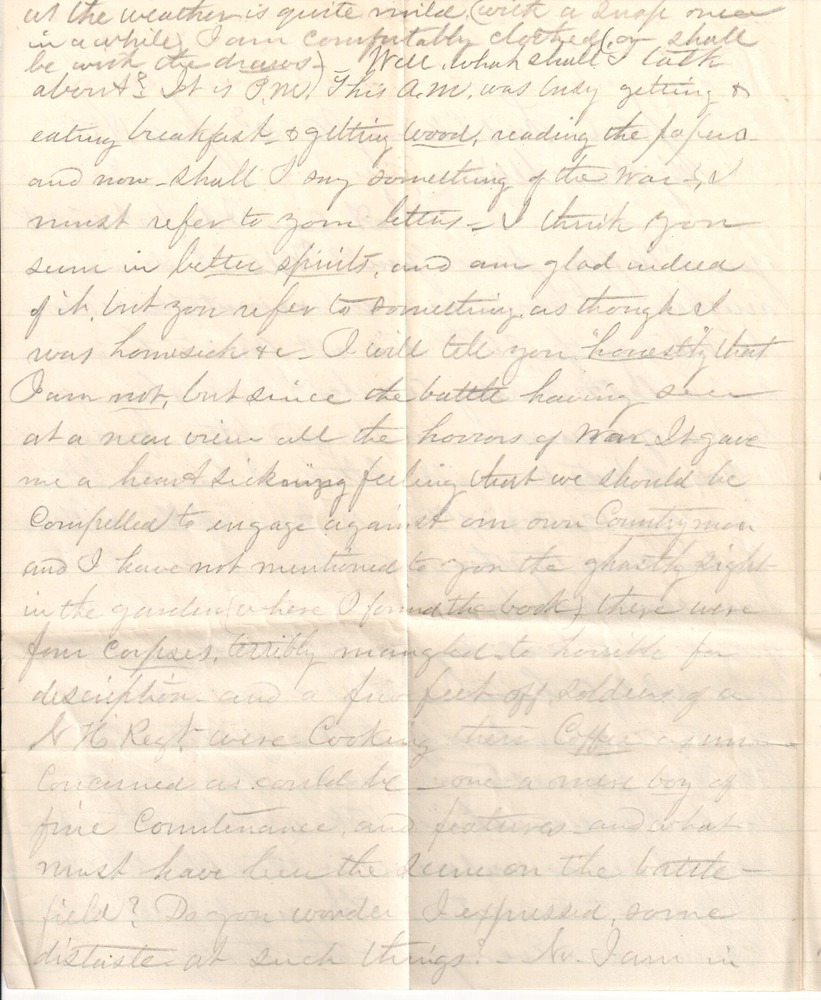 at the weather is quite mild (with a snap once
in a while) I am comfortably clothed (or shall
be with the drawers) - Well, what shall I talk
about? It is P.M. This A.M. was busy getting &
eating breakfast - & getting wood, reading the papers -
and now - shall I say something of the War -, I
must refer to your letters - I think you
seem in better spirits, and am glad indeed
of it, but you refer to something, as though I
was homesick &c - I will tell you "honestly" that
I am not, but since the battle having seen
at a near view all the horrors of War. It gave
me a heart sickning feeling that we should be
Compelled to engage against our own Countrymen
and I have not mentioned to you the ghastly sight
in the garden (where I found the book) there were
four corpses, terribly mangled - to horrible for
description - and a few feet off soldiers of a
N H Regt. were Cooking their Coffee as un
Concerned as could be - one a mere boy of
fine Countenance, and features - and what
must have been the scene on the battle -
field? Do you wonder I expressed some
distaste at such things? - No. I am in